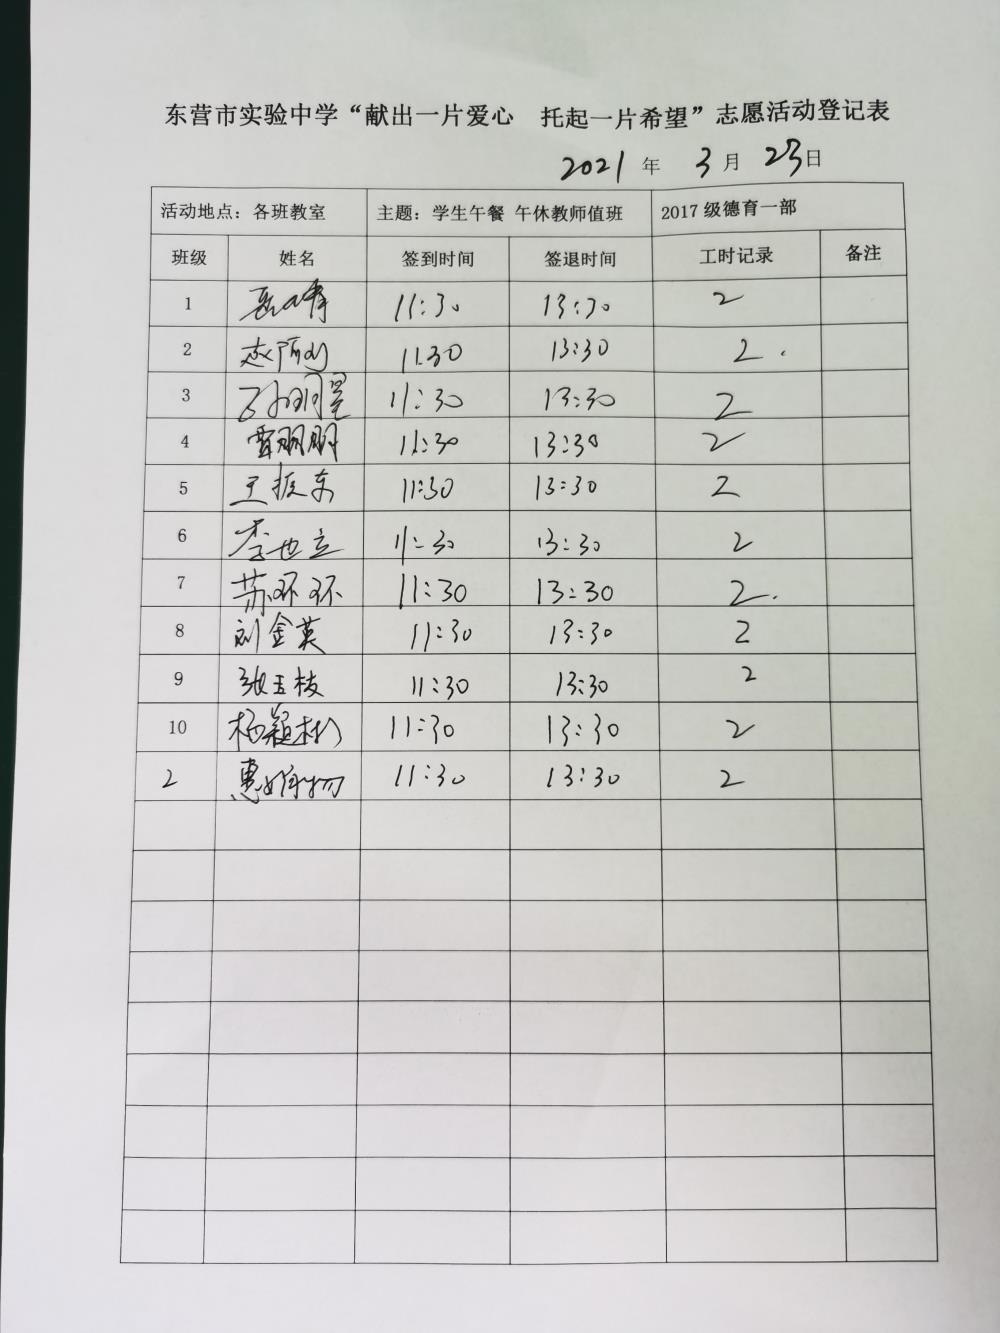 东营市实验中学“献出一片爱心 托起一片希望”志愿活动登记表
2021 年 3 月 23 日
活动地点：各班教室 主题：学生午餐 午休教师值班 2017 级德育一部
班级 姓名 签到时间 签退时间 工时记录 备注
1 11:30 13:30 2
2 11:30 13:30 2.
3 孙明星 11:30 13:30 2
4 贾朋朋 11:30 13:30 2
5 王振东 11:30 13:30 2
6 李世立 11:30 13:30 2
7 苏环环 11:30 13:30 2.
8 刘金英 11:30 13:30 2
9 张玉枝 11:30 13:30 2
10 杨颖彬 11:30 13:30 2
2 11:30 13:30 2